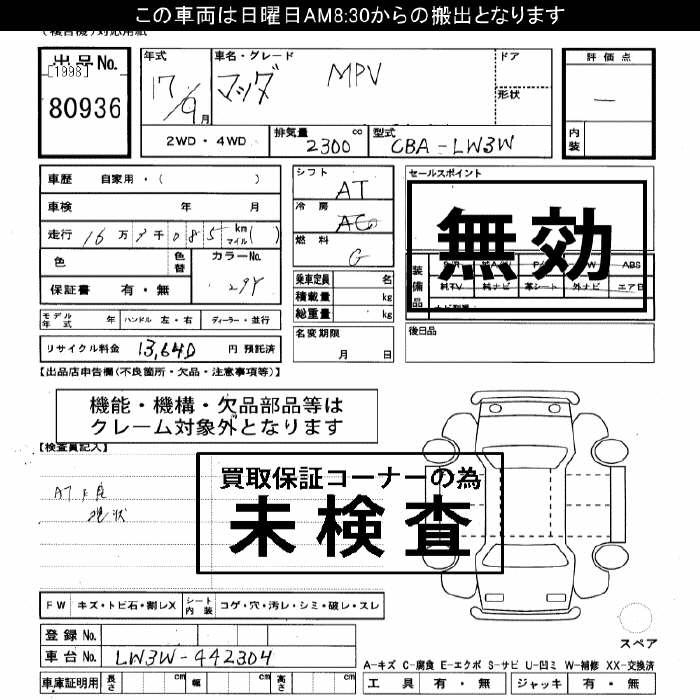 この車両は日曜日AM8:30からの搬出となります
出品No.
[1998]
80936
年式
17/9月
車名・グレード
マツダ MPV
ドア
形状
評価点
内装
2WD・4WD
排気量 2300 cc
型式 CBA-LW3W
車歴 自家用・( )
車検 年 月
走行 16万 0 8 5 km マイル ( )
色 色替 カラーNo.
保証書 有・無
シフト AT
冷房 AC
燃料 G
乗車定員 名
積載量 kg
総重量 kg
セールスポイント
無効
装備品 ABS
純TV 純ナビ 革シート 外ナビ エアB
モデル年式 年 ハンドル 左・右 ディーラー・並行
名変期限 月 日
後日品
リサイクル料金 13,640 円 預託済
【出品店申告欄(不良箇所・欠品・注意事項等)】
機能・機構・欠品部品等は
クレーム対象外となります
【検査員記入】
買取保証コーナーの為
未検査
AT不良
現状
FW キズ・トビ石・割レX シート内装 コゲ・穴・汚レ・シミ・破レ・スレ
登録No.
スペア
車台No. LW3W-442304
A-キズ C-腐食 E-エクボ S-サビ U-凹ミ W-補修 XX-交換済
車庫証明用 長さ cm 幅 cm 高さ cm
工具 有・無 ジャッキ 有・無